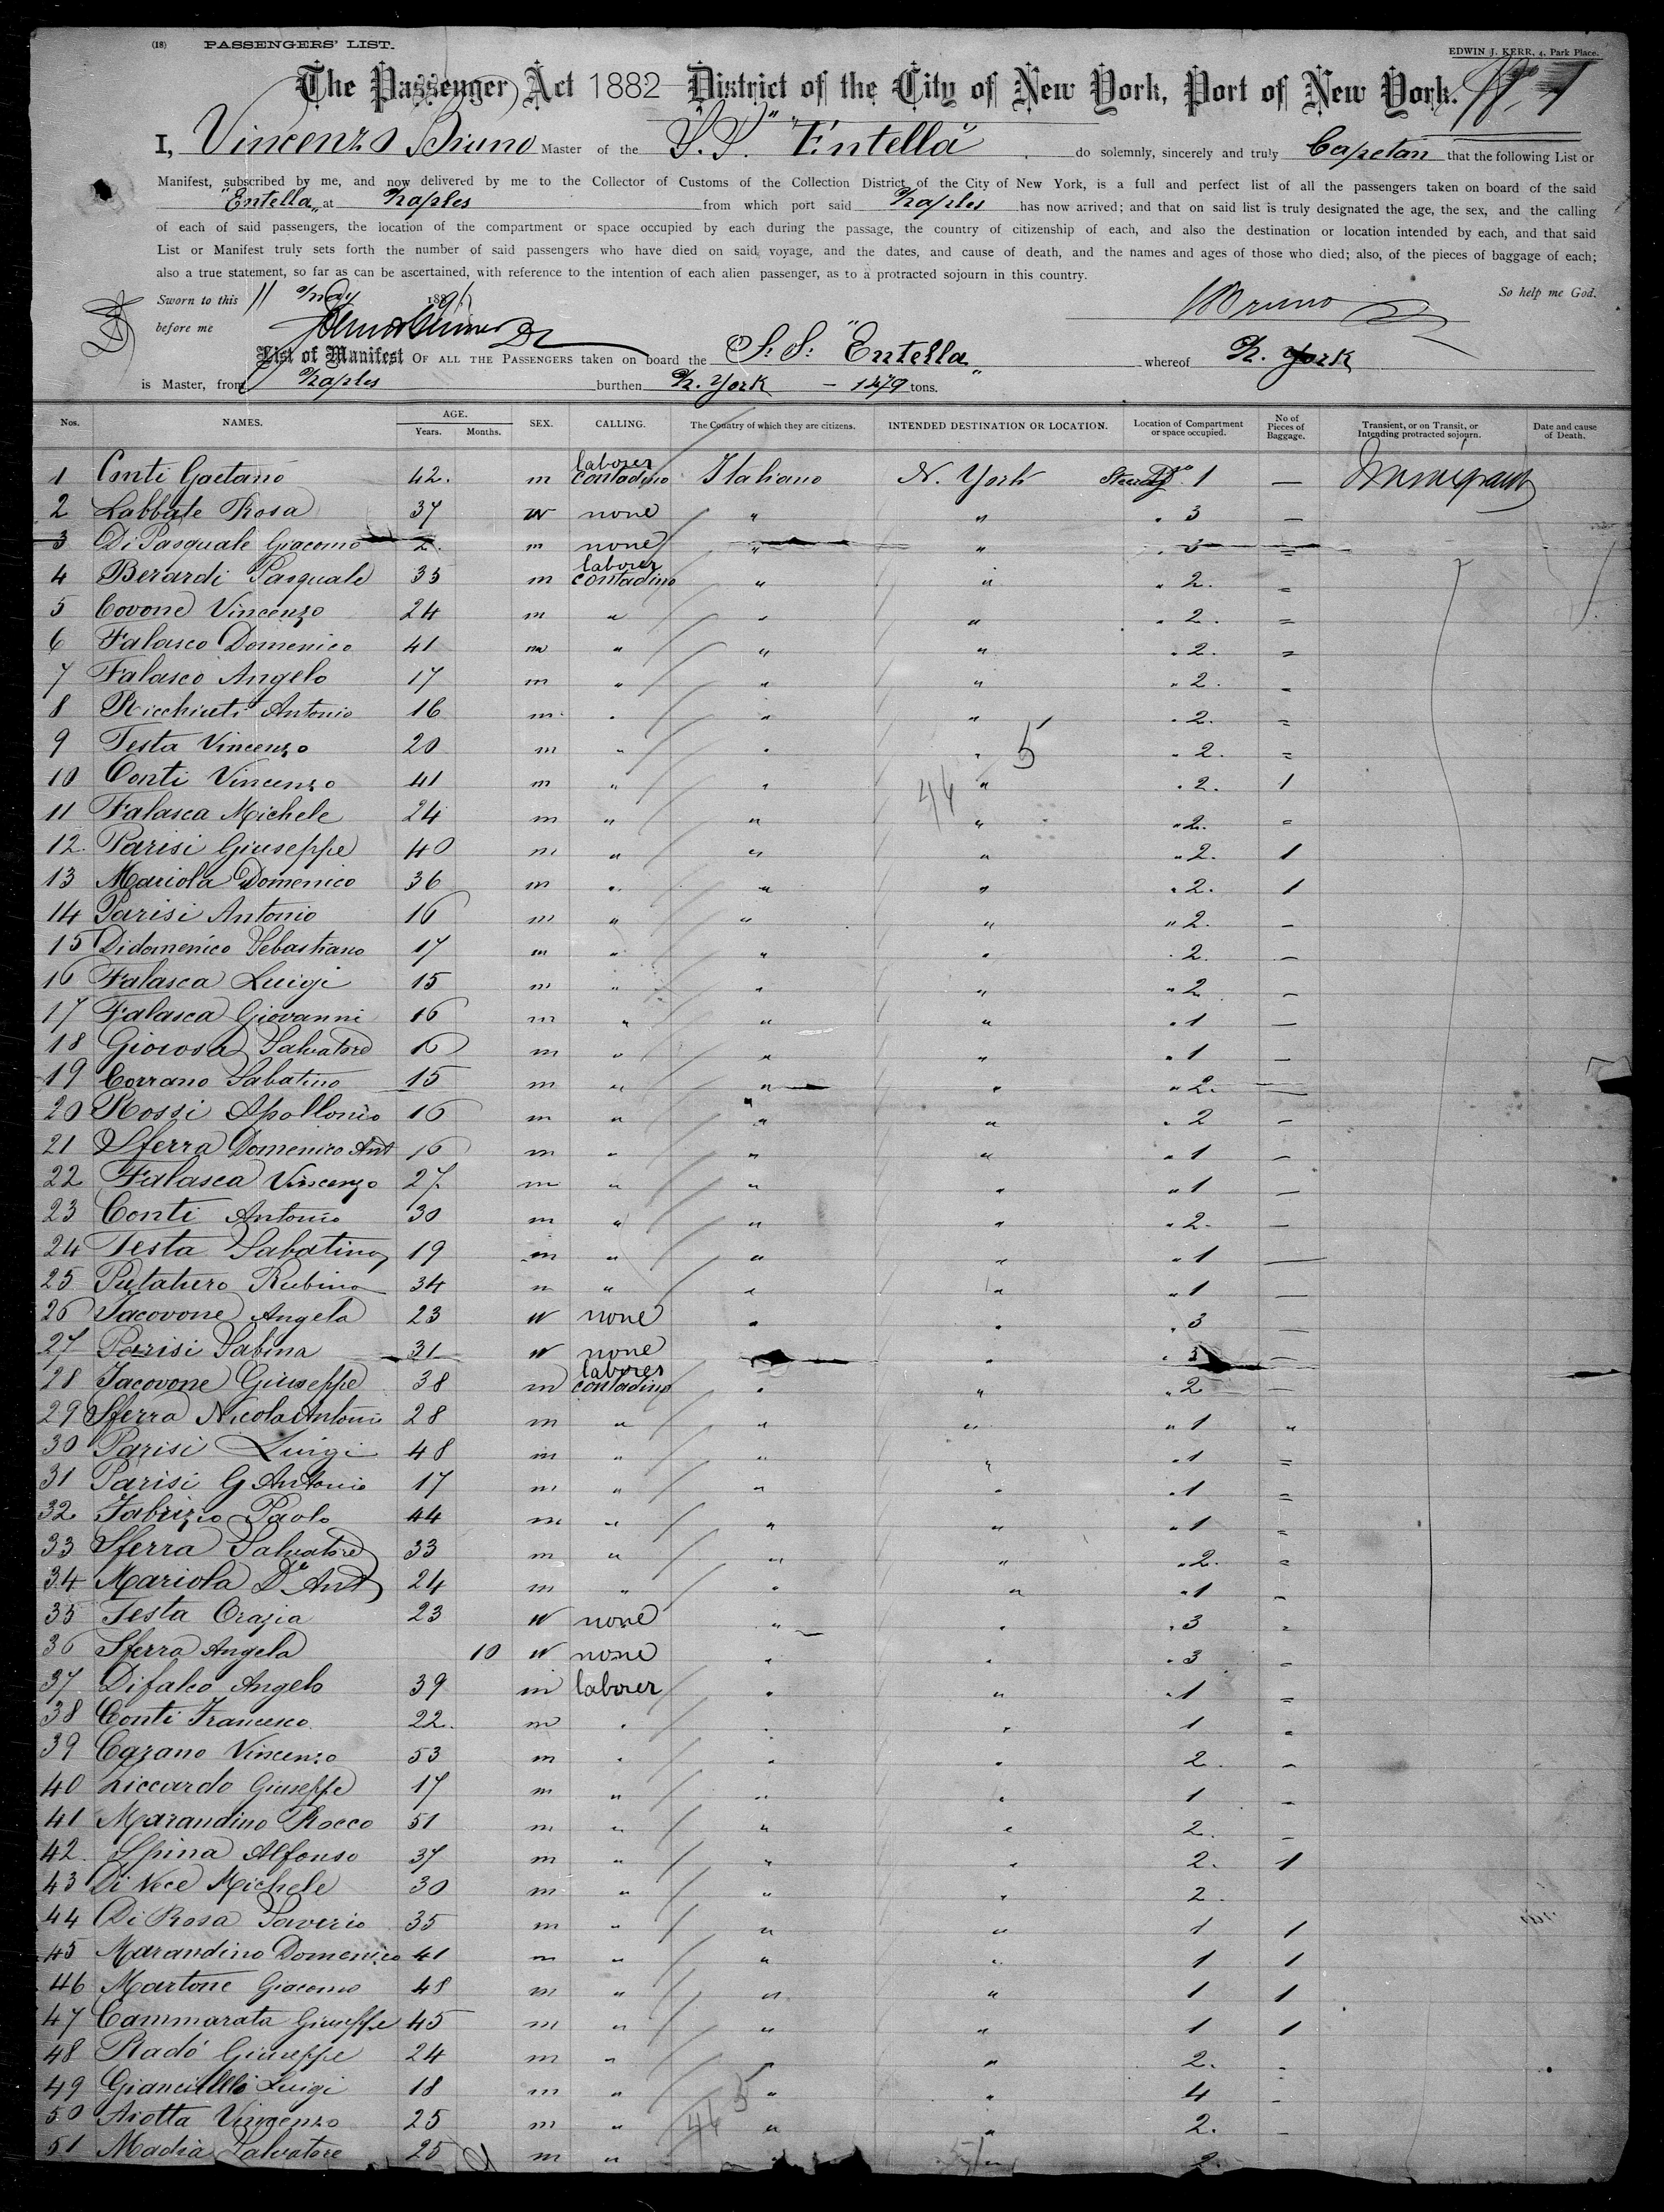 (18) PASSENGERS' LIST.
EDWIN J. KERR, 4, Park Place.
The Passenger Act 1882 District of the City of New York, Port of New York.
I, Vincenzo Bruno Master of the S.S. "Entella" do solemnly, sincerely and truly Capetan that the following List or
Manifest, subscribed by me, and now delivered by me to the Collector of Customs of the Collection District of the City of New York, is a full and perfect list of all the passengers taken on board of the said
"Entella" at Naples from which port said Naples has now arrived; and that on said list is truly designated the age, the sex, and the calling
of each of said passengers, the location of the compartment or space occupied by each during the passage, the country of citizenship of each, and also the destination or location intended by each, and that said
List or Manifest truly sets forth the number of said passengers who have died on said voyage, and the dates, and cause of death, and the names and ages of those who died; also, of the pieces of baggage of each;
also a true statement, so far as can be ascertained, with reference to the intention of each alien passenger, as to a protracted sojourn in this country.
Sworn to this 11 May 1891 So help me God.
before me VBruno
List of Manifest OF ALL THE PASSENGERS taken on board the S.S: "Entella" whereof N. York
is Master, from Naples burthen N. York — 1479 tons.
Nos. NAMES. AGE. Years. Months. SEX. CALLING. The Country of which they are citizens. INTENDED DESTINATION OR LOCATION. Location of Compartment or space occupied. No of Pieces of Baggage. Transient, or on Transit, or Intending protracted sojourn. Date and cause of Death.
1 Conti Gaetano 42. m laborer contadino Italiano N. York 1 —
2 Labbate Rosa 37 w none " " " 3 —
3 Di Pasquale Giacomo 2. m none " " " 3 =
4 Berardi Pasquale 35 m laborer contadino " " " 2. =
5 Covone Vincenzo 24 m " " " " 2. =
6 Falasco Domenico 41 m " " " " 2. =
7 Falasco Angelo 17 m " " " " 2. =
8 Ricchiuti Antonio 16 m " " " " 2. =
9 Testa Vincenzo 20 m " " " 5 " 2. =
10 Conti Vincenzo 41 m " " 44 " " 2. 1
11 Falasca Michele 24 m " " " " 2. =
12. Parisi Giuseppe 40 m " " " " 2. 1
13 Mariola Domenico 36 m " " " " 2. 1
14 Parisi Antonio 16 m " " " " 2. —
15 Didomenico Sebastiano 17 m " " " " 2. —
16 Falasca Luigi 15 m " " " " 2 —
17 Falasca Giovanni 16 m " " " " 1 —
18 Giorosa Salvatore 16 m " " " " 1 —
19 Corrano Sabatino 15 m " " " " 2. —
20 Rossi Apollonio 16 m " " " " 2 —
21 Sferra Domenico Ant 16 m " " " " 1 —
22 Falasca Vincenzo 27. m " " " " 1 —
23 Conti Antonio 30 m " " " " 2. —
24 Testa Sabatino 19 m " " " " 1 —
25 Putaturo Rubino 34 m " " " " 1 —
26 Iacovone Angela 23 w none " " " 3 —
27 Parisi Sabina 31 w none " " 3 —
28 Iacovone Giuseppe 38 m laborer contadino " " " 2 —
29 Sferra Nicola Antoni 28 m " " " " 1 "
30 Parisi Luigi 48 m " " " " 1 =
31 Parisi G Antonio 17 m " " " " 1 =
32. Fabrizio Paolo 44 m " " " " 1 =
33 Sferra Salvatore 33 m " " " " 2. =
34 Mariola Do Ant 24 m " " " " 1 —
35 Testa Orazia 23 w none " " " 3 =
36 Sferra Angela 10 w none " " " 3 =
37 Difalco Angelo 39 m laborer " " " 1 =
38 Conti Francesco 22. m " " " 1 =
39 Cazano Vincenzo 53 m " " " 2. —
40 Liccardo Giuseppe 17 m " " " 1 —
41 Marandino Rocco 51 m " " " 2. —
42. Spina Alfonso 37 m " " " 2. 1
43 Di Nece Michele 30 m " " " 2.
44 Di Rosa Saverio 35 m " " " 1 1
45 Marandino Domenico 41 m " " " 1 1
46 Martone Giacomo 48 m " " " 1 1
47 Cammarata Giuseppe 45 m " " " 1 1
48 Radó Giuseppe 24 m " " " 2. —
49 Luigi 18 m " 5 " " 4 —
50 Aiotta Vingenzo 25 m " 46 " " 2. —
51 Madia Salvatore 25 m " " 2